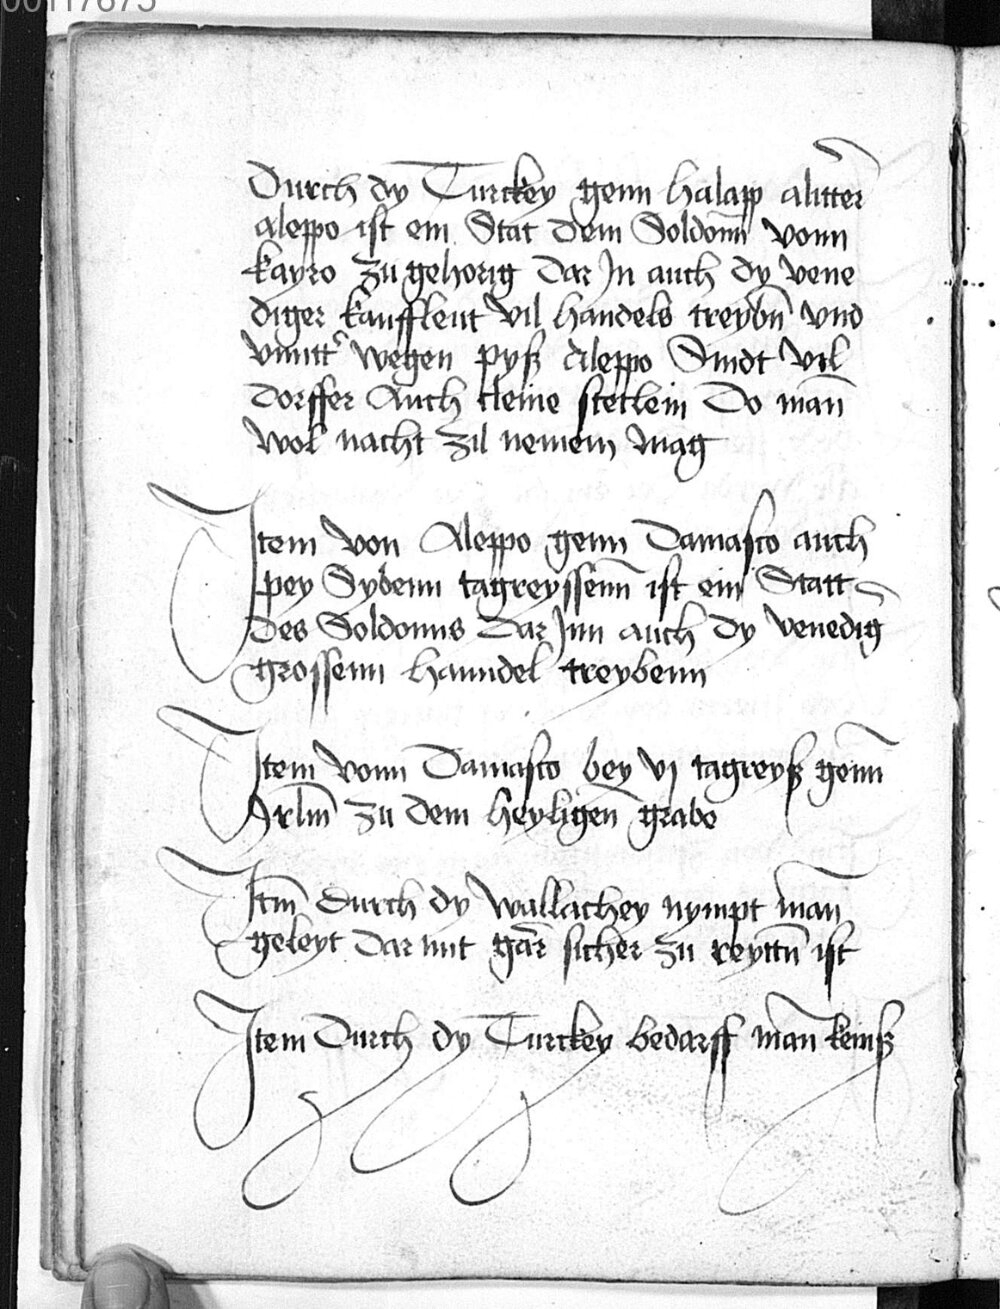 00117875
Durch dy Turckey genn halapp alitter
Aleppo ist ein Stat dem Soldonn vonn
kayro zu gehorig Dar Jn auch dy vene
diger kauffleut vil handels treybn vnd
vnntter wegen pyß Aleppo Sindt vil
dorffer Auch kleine stetlein Do man
wol nacht zil nemem mag
Item von Aleppo genn Damasco auch
pey Sybenn tagreyssenn ist ein Statt
des Soldonns Dar Jnn auch dy venedig
grossenn hanndel treybenn
Item vonn Damasco bey vj tagreyß genn
Jrlm zu dem heyligen grabe
Itm durch dy wallachey nympt man
geleyt dar mit gar sicher zu reyttn ist
Item Durch dy Turckey bedarff man keinß